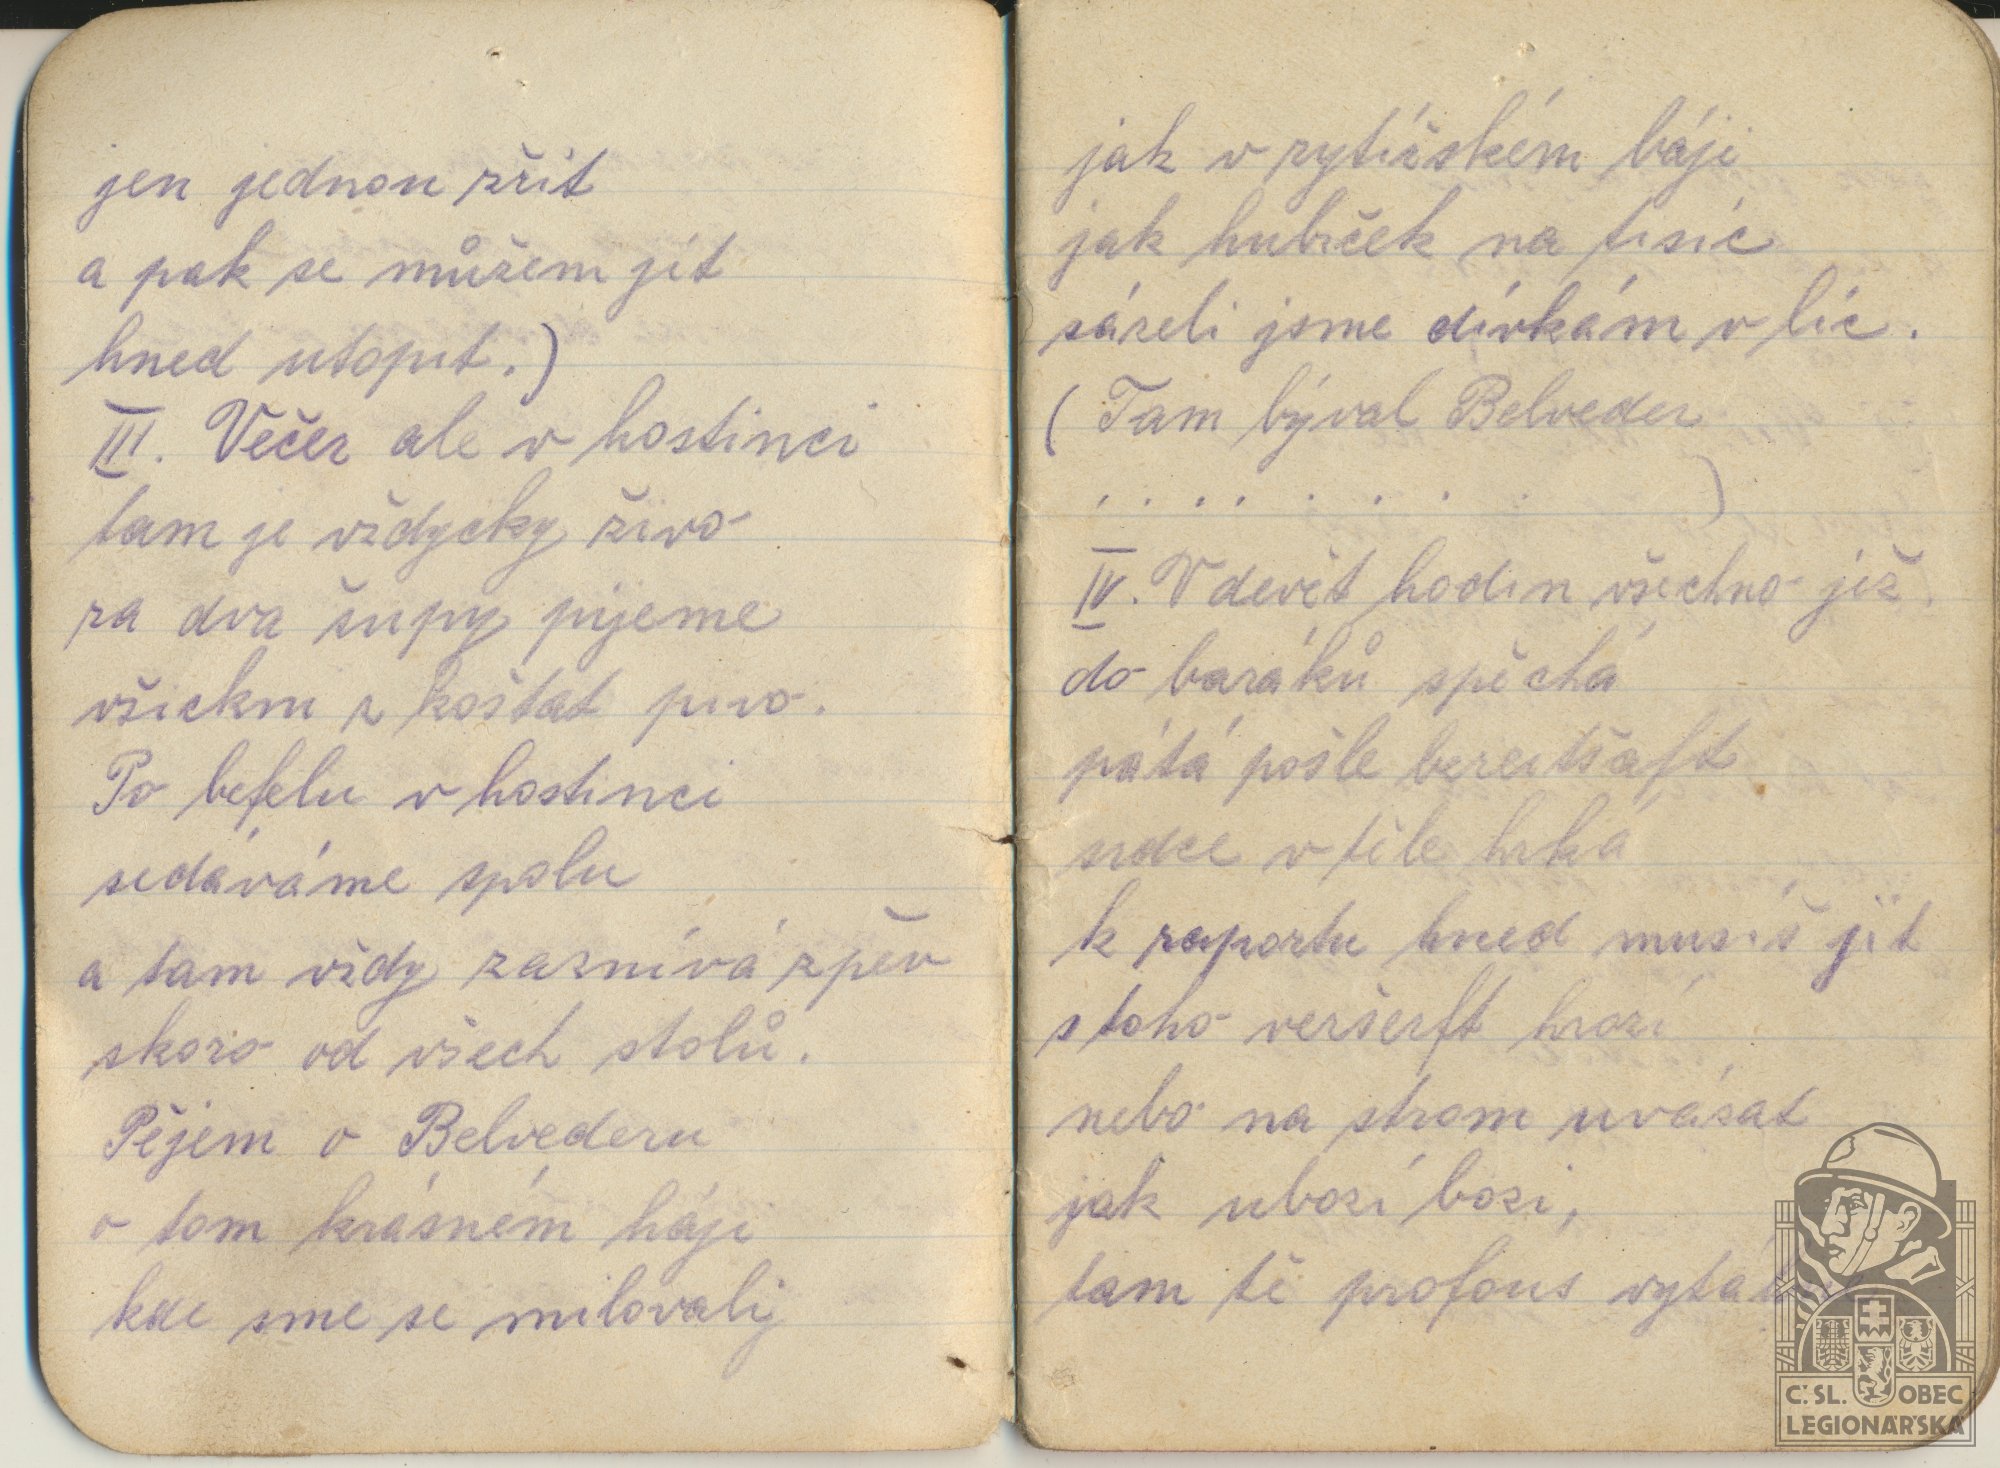 jen jednou zřít
a pak se můžem jít
hned utopit.)
III. Večer ale v hostinci
tam je vždycky živo
za dva šupy pijeme
všickni z koštat pivo.
Po befelu v hostinci
sedáváme spolu
a tam vždy zaznívá zpěv
skoro od všech stolů.
Pějem o Belvederu
o tom krásném háji
kde sme se milovali
jak v rytířském báji
jak hubiček na tisíc
sázeli jsme dívkám v líc.
(Tam býval Belveder
. . . . . . . .)
IV. V devět hodin všechno již
do baráků spěchá
pátá pošle bereitšaft
srdce v těle hrká
k raportu hned musíš jít
s toho veršerft hrozí
nebo na strom uvázat
jak ubozí bozi,
tam tě profous
Č. SL. OBEC
LEGIONÁŘSKÁ